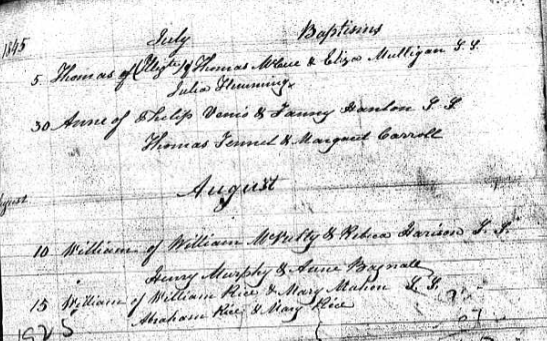 1845 July Baptisms
5 Thomas of (Illegte) of Thomas McCue & Eliza Mulligan S.S.
Julia Flemming
30 Anne of Philip Venis & Fanny Hanlon S S
Thomas Fennel & Margaret Carroll
August
August
10 William of William McNulty & Rebeca Harison S. S.
Henry Murphy & Anne Bagnall
15 William of William Rice & Mary Mahon S S
Abraham Rice & Mary Rice